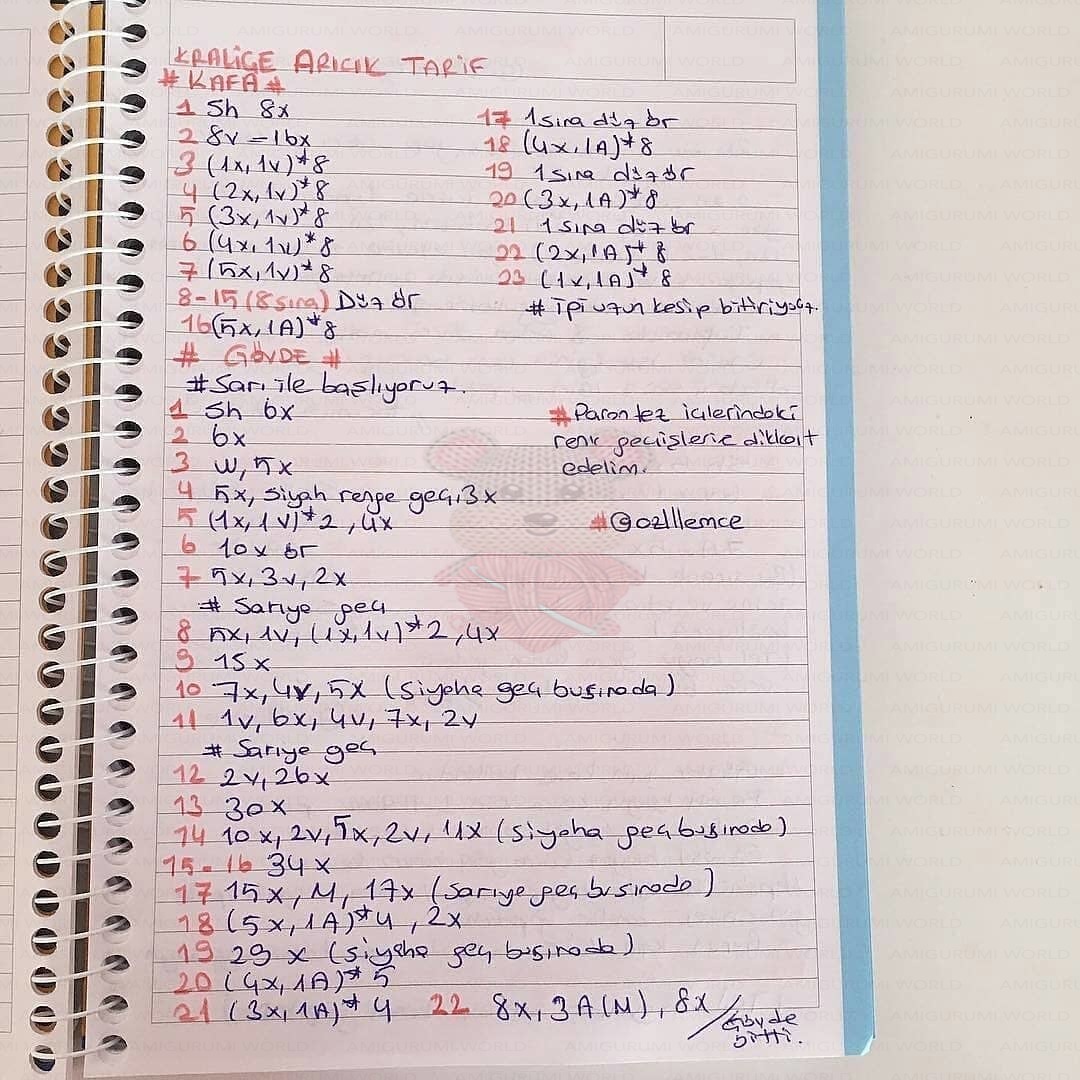 KRALİÇE ARICIK TARİF
# KAFA #
1 Sh 8x
2 8v = 16x
3 (1x, 1v)*8
4 (2x, 1v)*8
5 (3x, 1v)*8
6 (4x, 1v)*8
7 (5x, 1v)*8
8-15 (8 sıra) Düz ör
16 (5x, 1A)*8
17 1 sıra düz ör
18 (4x, 1A)*8
19 1 sıra düz ör
20 (3x, 1A)*8
21 1 sıra düz ör
22 (2x, 1A)*8
23 (1x, 1A)*8
# İpi uzun kesip bitiriyoruz.
# GÖVDE #
# Sarı ile başlıyoruz.
1 Sh 6x
2 6x
3 W, 5x
4 5x, siyah renge geç, 3x
5 (1x, 1v)*2, 4x
6 10x ör
7 5x, 3v, 2x
# Sarıya geç
8 5x, 1v, (1x, 1v)*2, 4x
9 15x
10 7x, 4v, 5x (siyaha geç bu sırada)
11 1v, 6x, 4v, 7x, 2v
# Sarıya geç
12 2v, 26x
13 30x
14 10x, 2v, 5x, 2v, 11x (siyaha geç bu sırada)
15-16 34x
17 15x, M, 17x (sarıya geç bu sırada)
18 (5x, 1A)*4, 2x
19 29x (siyaha geç bu sırada)
20 (4x, 1A)*5
21 (3x, 1A)*4 22 8x, 3A(M), 8x / Gövde
bitti.
# Parantez içlerindeki
renk geçişlerine dikkat
edelim.
# @ozlllemce
AMIGURUMI WORLD